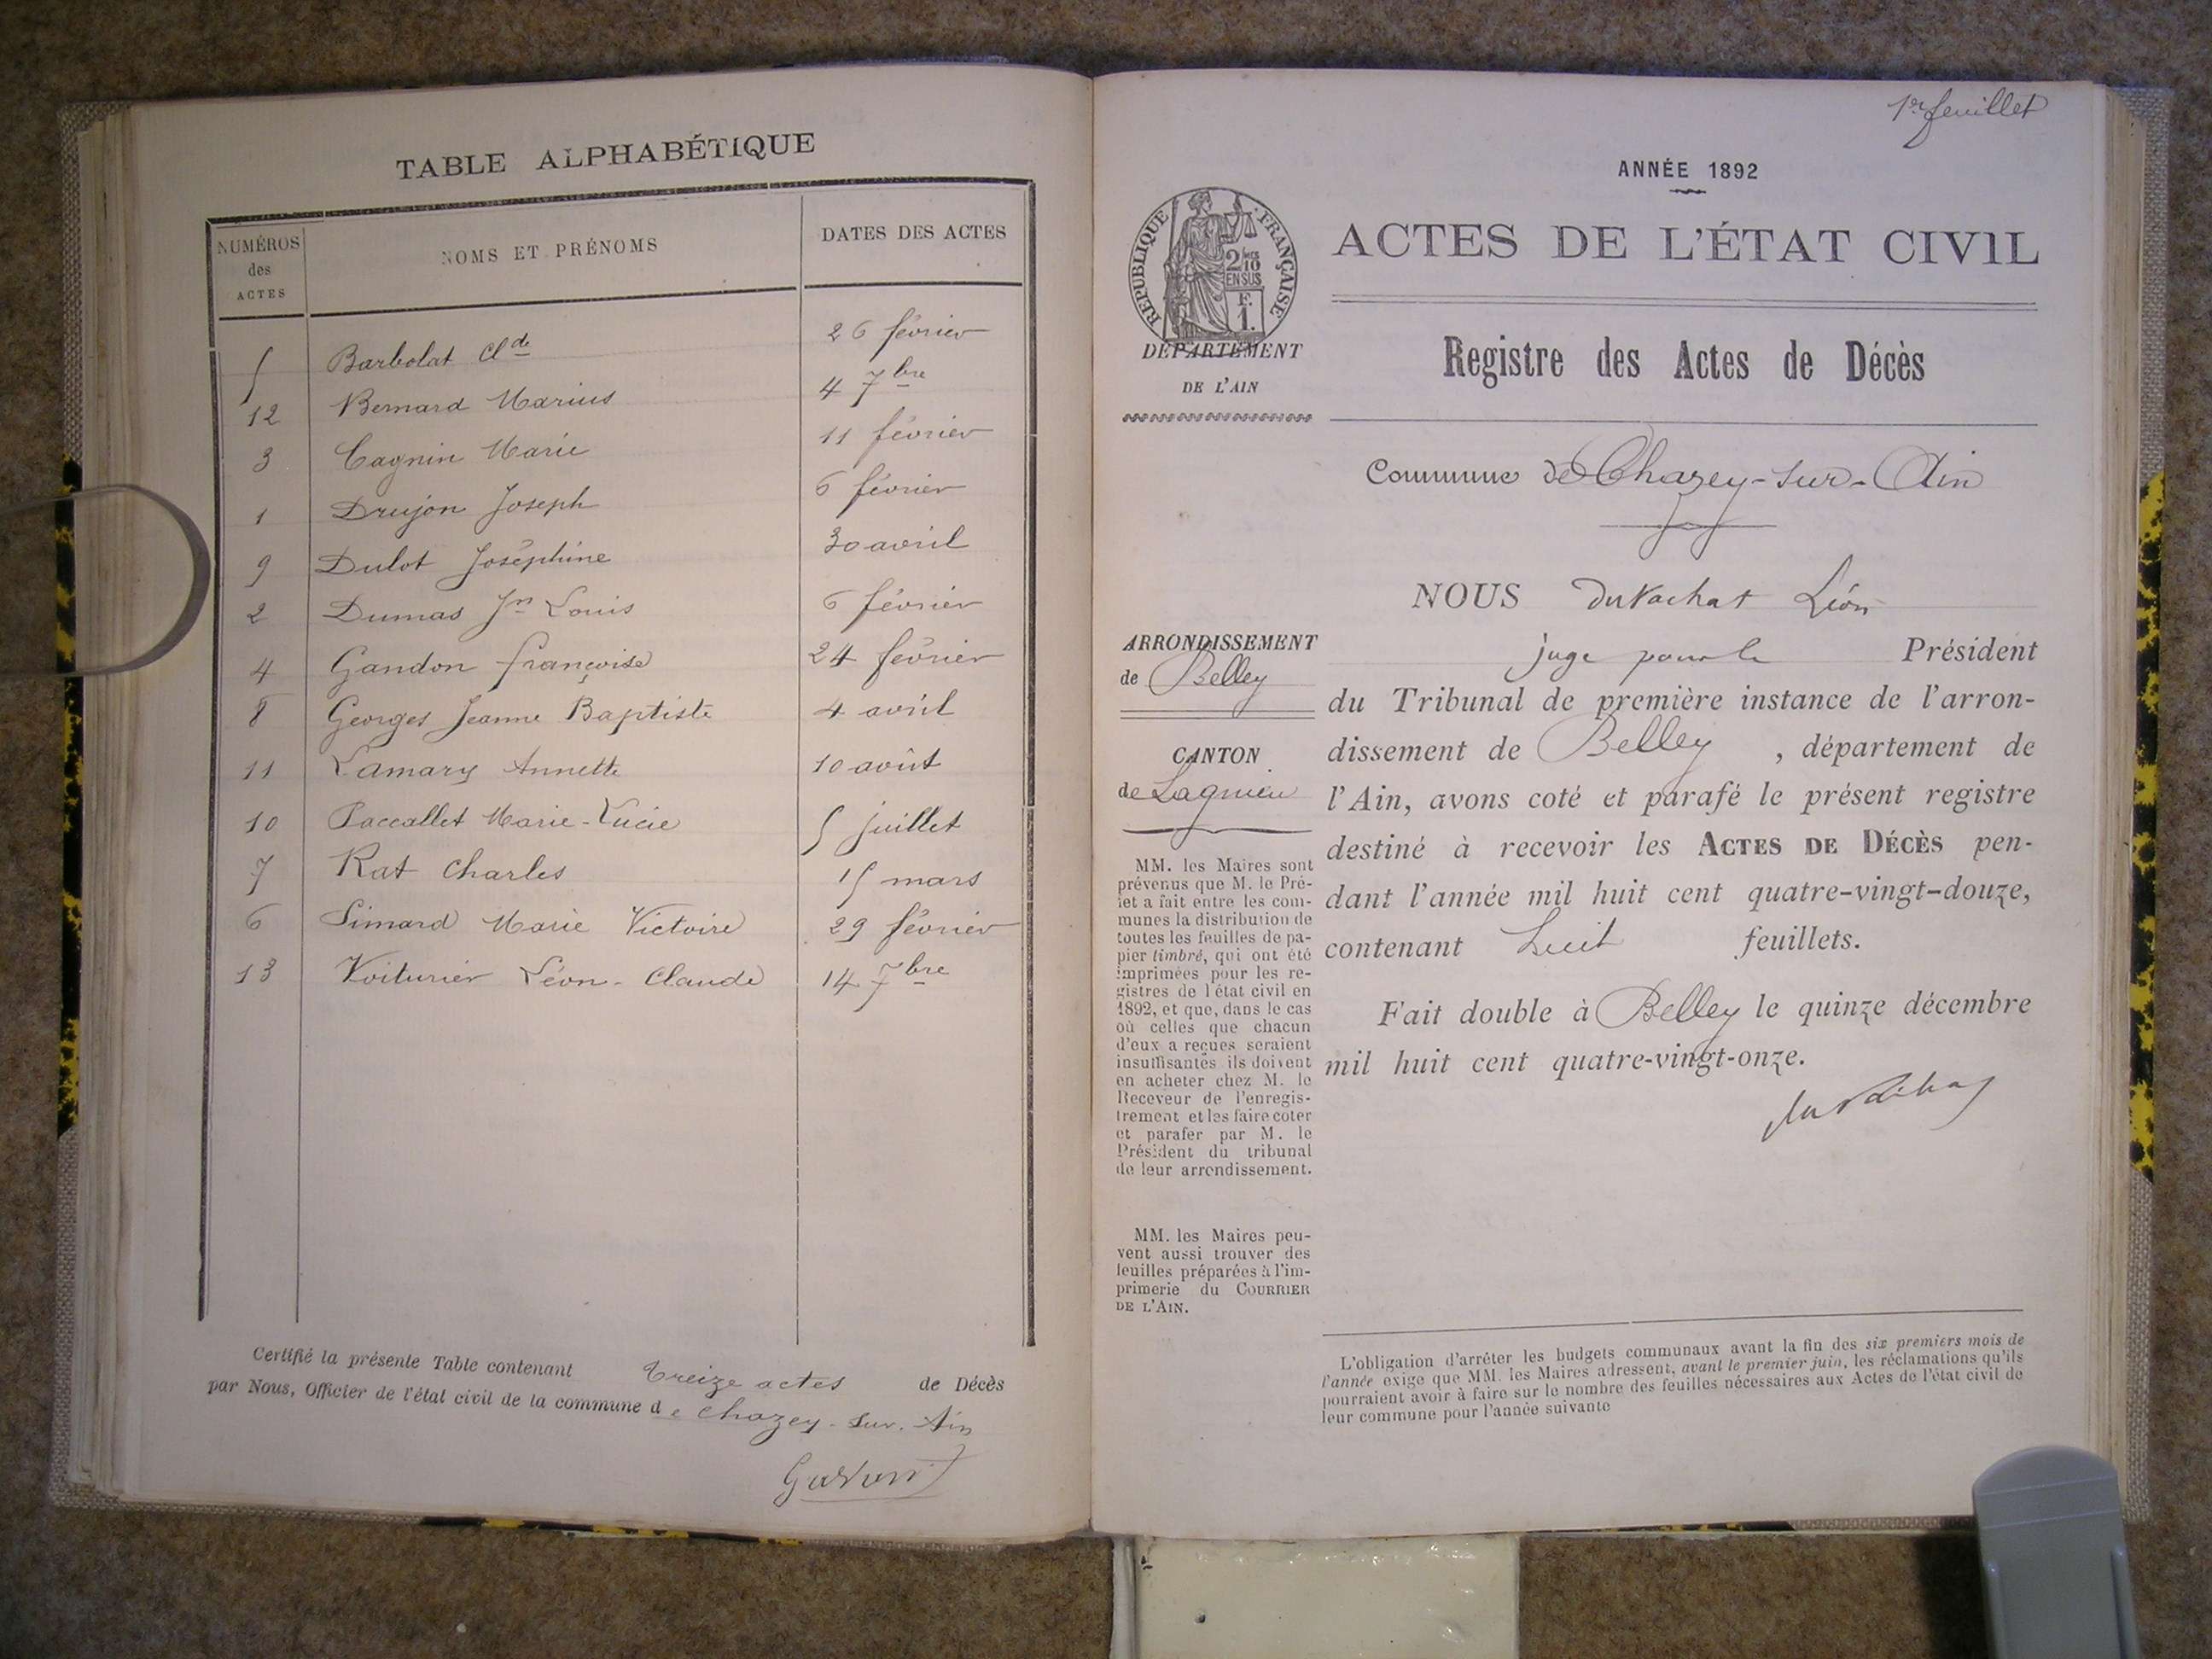 TABLE ALPHABÉTIQUE
NUMÉROS des ACTES NOMS ET PRÉNOMS DATES DES ACTES
5 Barbolat Cl de 26 février
12 Bernard Marius 4 7bre
3 Cagnin Marie 11 février
1 Drujon Joseph 6 février
9 Dulot Joséphine 30 avril
2 Dumas Jn Louis 6 février
4 Gandon françoise 24 février
8 Georges Jeanne Baptiste 4 avril
11 Lamary Annette 10 août
10 Paccallet Marie-Lucie 5 juillet
7 Rat Charles 15 mars
6 Simard Marie Victoire 29 février
13 Voiturier Léon-Claude 14 7bre
Certifié la présente Table contenant treize actes de Décès
par Nous, Officier de l'état civil de la commune de Chazey-sur-Ain
1er feuillet
ANNÉE 1892
RÉPUBLIQUE FRANÇAISE
2/10
EN SUS
F.
1.
ACTES DE L'ÉTAT CIVIL
DÉPARTEMENT
DE L'AIN
Registre des Actes de Décès
Commune de Chazey-sur-Ain
NOUS Léon
juge pour le Président
du Tribunal de première instance de l'arron-
dissement de Belley, département de
l'Ain, avons coté et parafé le présent registre
destiné à recevoir les ACTES DE DÉCÈS pen-
dant l'année mil huit cent quatre-vingt-douze,
contenant huit feuillets.
Fait double à Belley le quinze décembre
mil huit cent quatre-vingt-onze.
ARRONDISSEMENT
de Belley
CANTON
de Lagnieu
MM. les Maires sont
prévenus que M. le Pré-
fet a fait entre les com-
munes la distribution de
toutes les feuilles de pa-
pier timbré, qui ont été
imprimées pour les re-
gistres de l'état civil en
1892, et que, dans le cas
où celles que chacun
d'eux a reçues seraient
insuffisantes ils doivent
en acheter chez M. le
Receveur de l'enregis-
trement et les faire coter
et parafer par M. le
Président du tribunal
de leur arrondissement.
MM. les Maires peu-
vent aussi trouver des
feuilles préparées à l'im-
primerie du COURRIER
DE L'AIN.
L'obligation d'arrêter les budgets communaux avant la fin des six premiers mois de
l'année exige que MM. les Maires adressent, avant le premier juin, les réclamations qu'ils
pourraient avoir à faire sur le nombre des feuilles nécessaires aux Actes de l'état civil de
leur commune pour l'année suivante